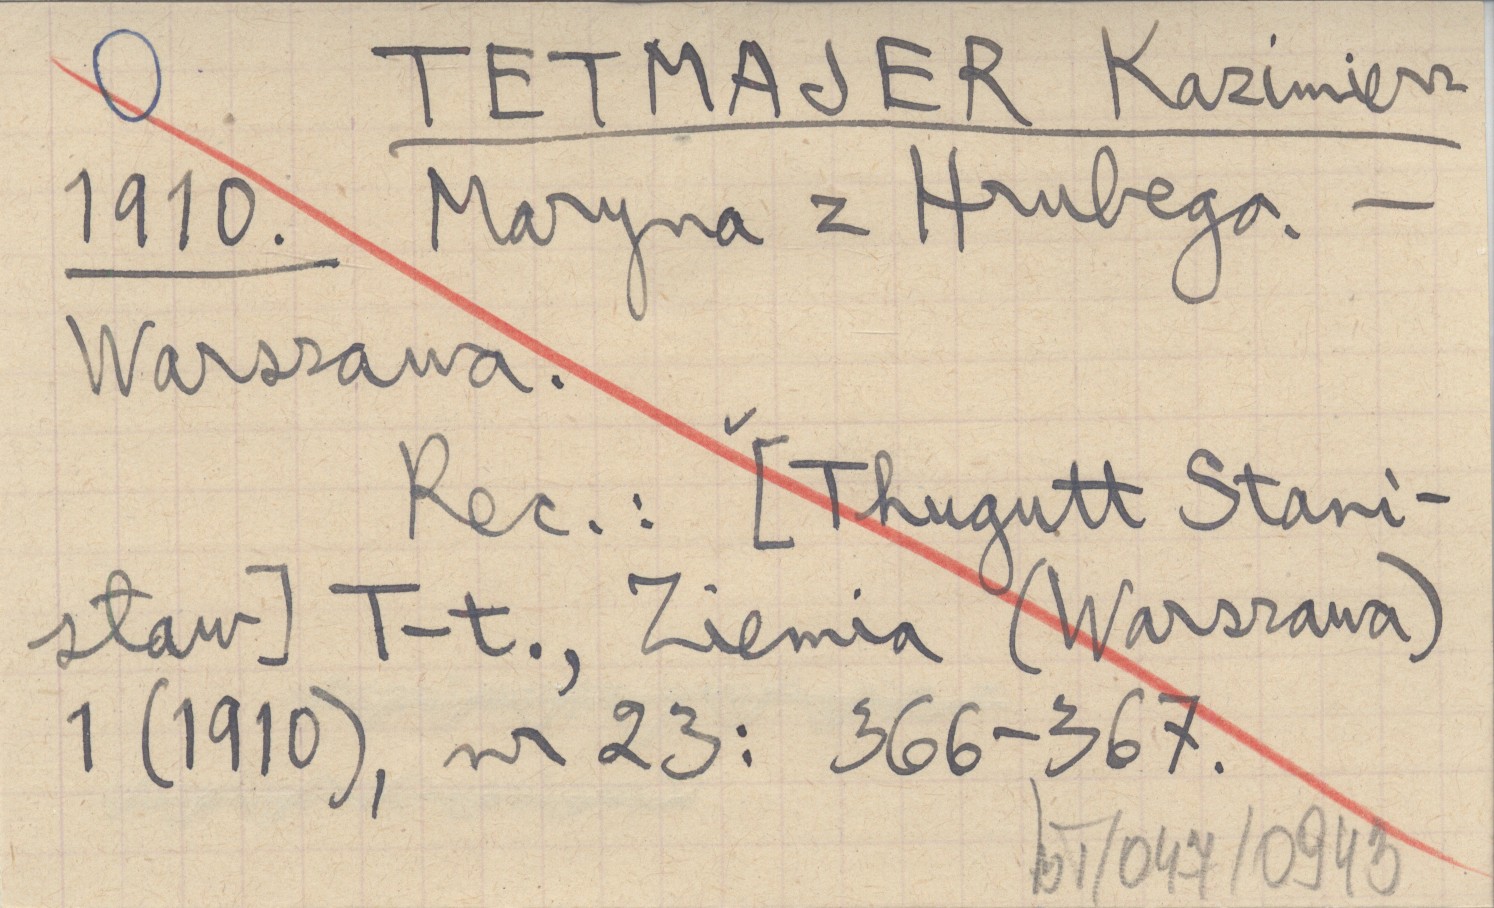 TETMAJER Kazimierz
1910. Maryna z Hrubego. —
Warszawa.
Rec.: [Thugutt Stani-
sław] T-t., Ziemia (Warszawa)
1 (1910), nr 23: 366-367.
bT/047/0943